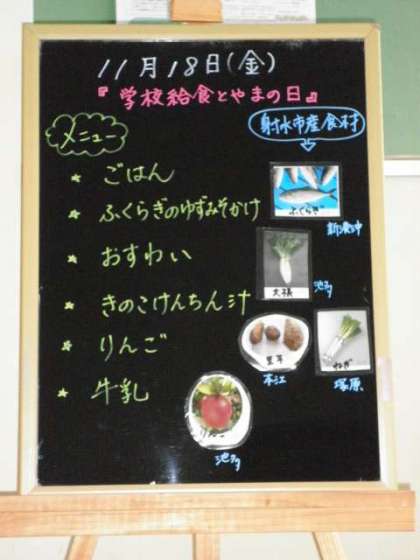 11月18日(金)
『学校給食とやまの日』
メニュー
射水市産食材
★ ごはん
★ ふくらぎのゆずみそかけ
★ おすわい
★ きのこけんちん汁
★ りんご
★ 牛乳
ふくらぎ
新湊沖
大根
池多
里芋
本江
ねぎ
塚原
りんご
池多